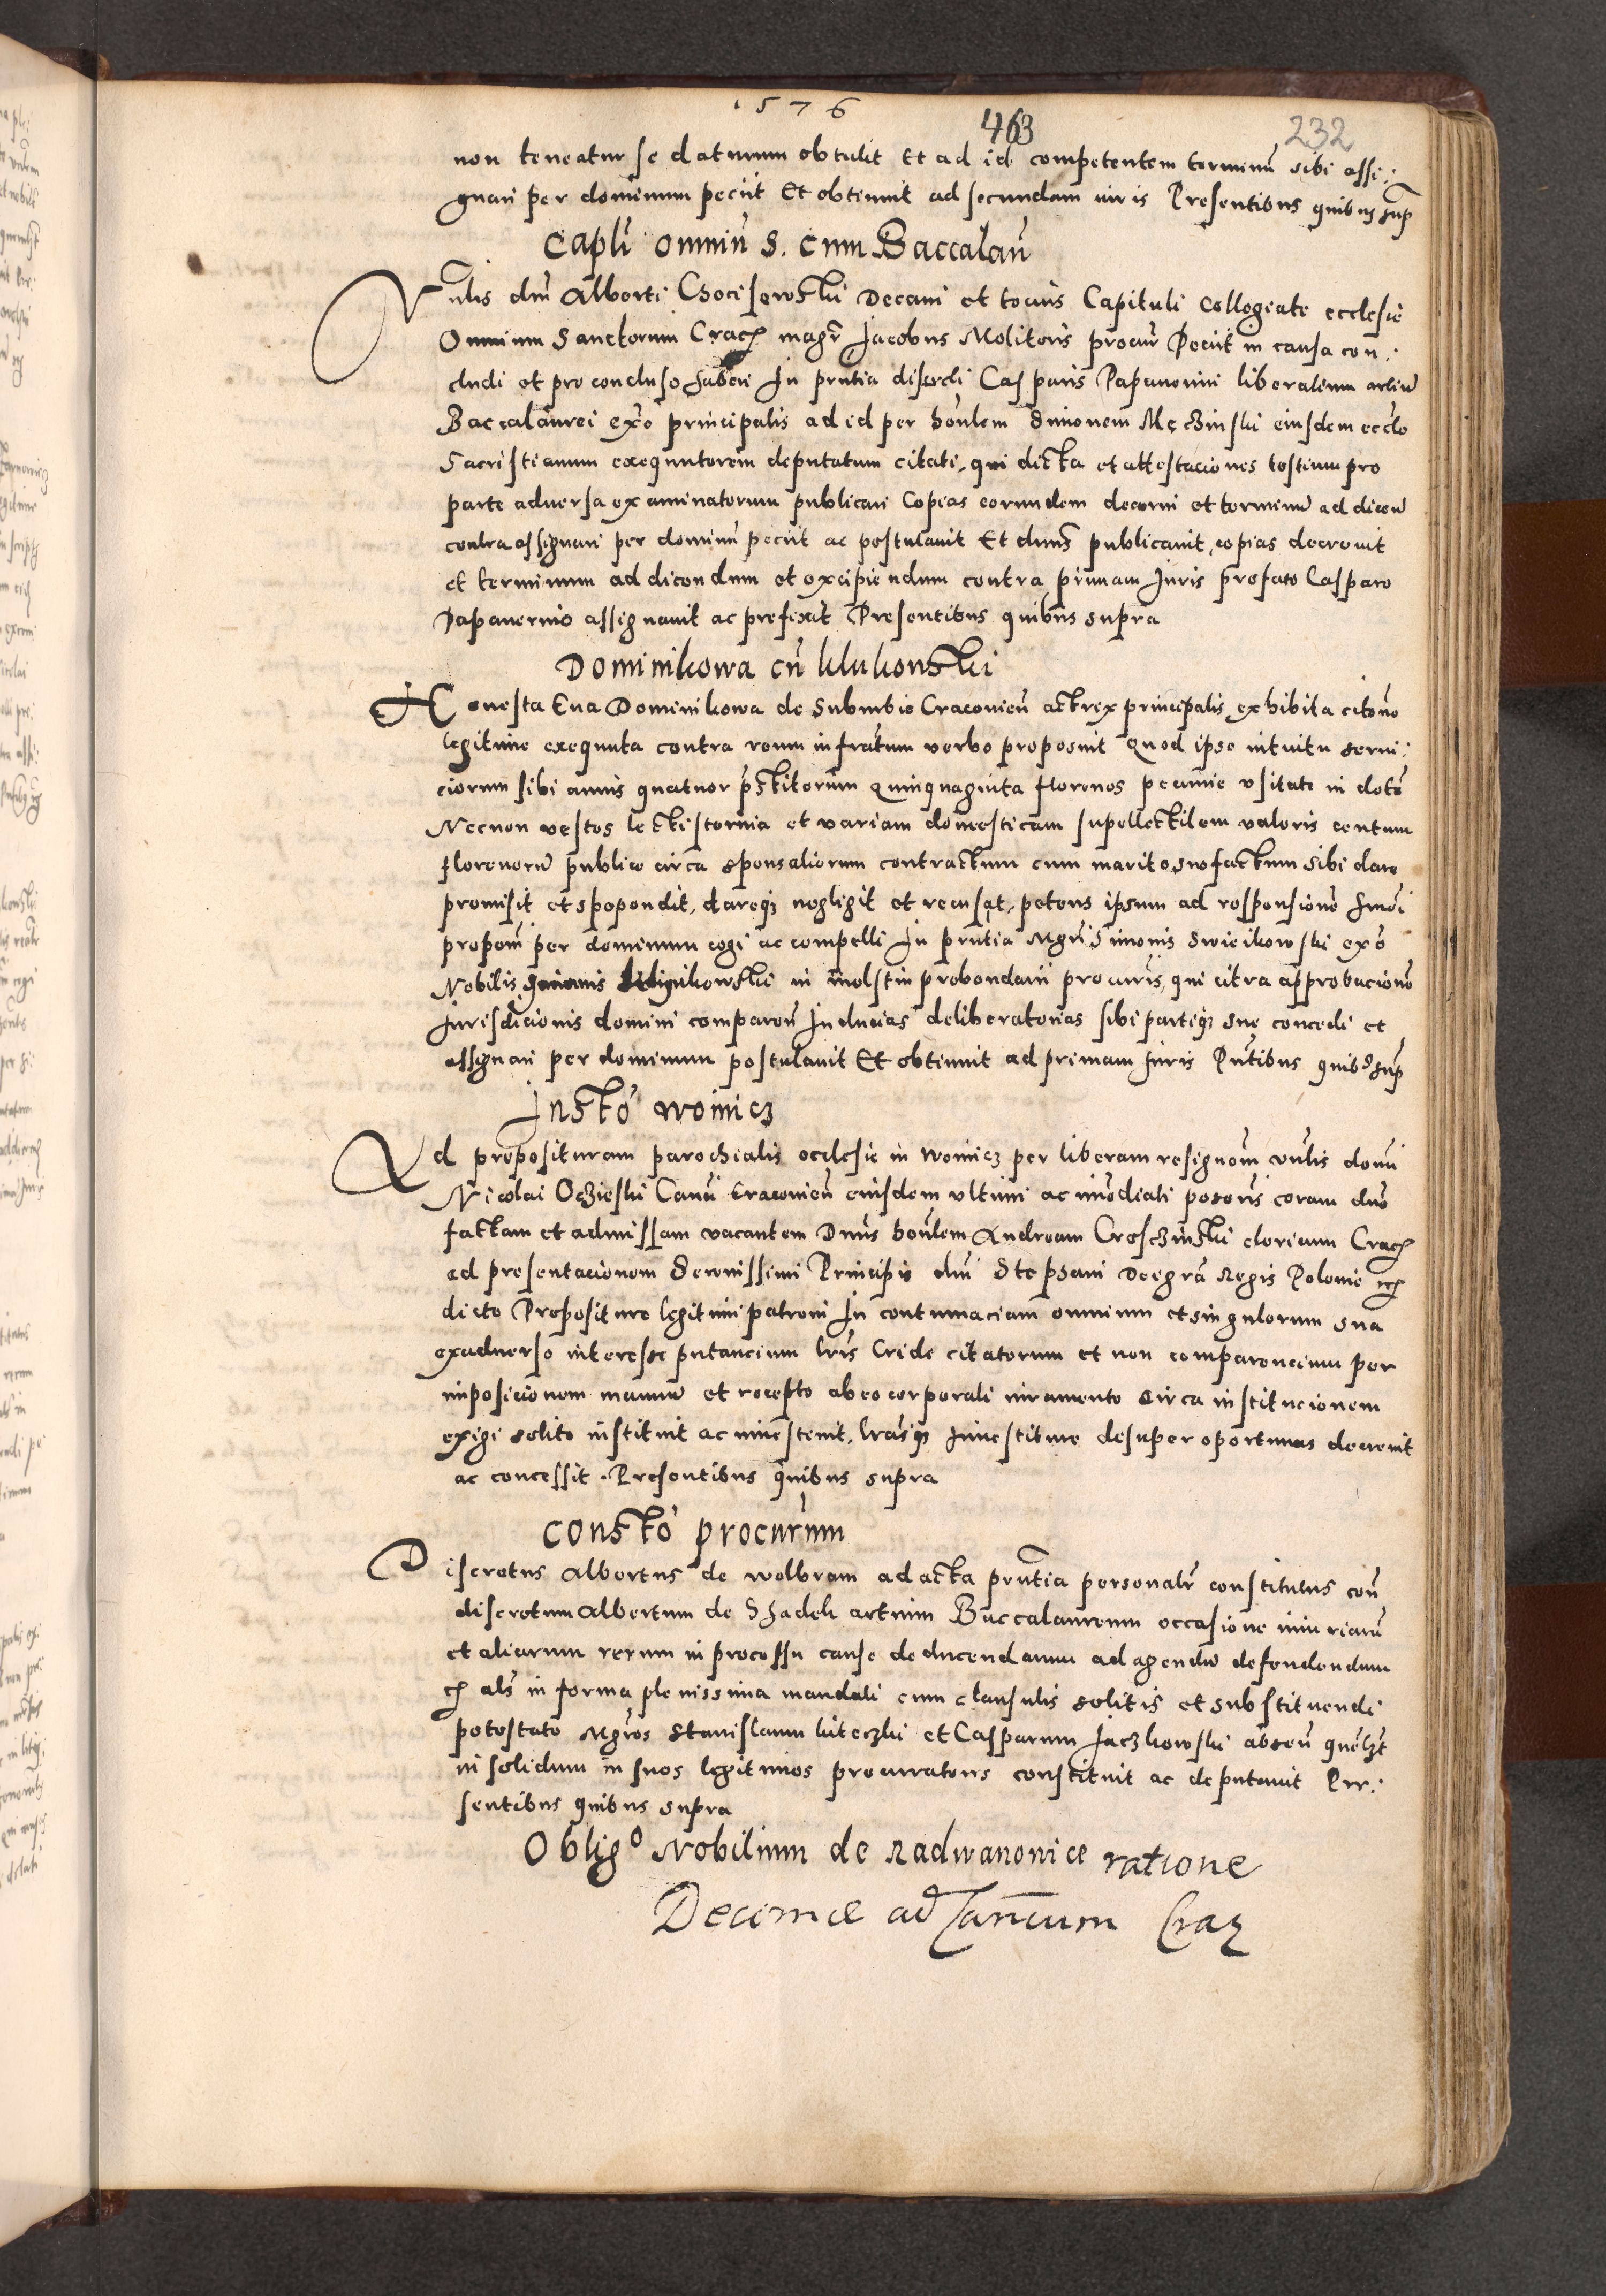 1576
463
232
non teneatur se daturum obtulit Et ad id competentem terminũ sibi assi:
gnari per dominum peciit Et obtinuit ad secundam iuris Presentibus quibus sup
Capli omniũ S. cum Baccalaũ
Vnlis dni Alberti Chocisewski Decani et tocius Capituli Collegiate ecclesie
Omnium Sanctorum Crac magr Jacobus Molitoris procur Peciit in causa con:
cludi et pro concluso haberi In pntia discreti Casparis Papauerini liberalium artiũ
Baccalaurei exo principalis ad id per honlem Simonem Męczinski eiusdem eccle
Sacristianum exequutorem deputatum citati, qui dicta et attestaciones testium pro
parte aduersa examinatorum publicari Copias eorundem decerni et terminũ ad dicen
contra assignari per dominũ peciit ac postulauit Et dnus publicauit, copias decreuit
et terminum ad dicendum et excipiendum contra primam Juris prefato Casparo
Papauerino assignauit ac prefixit Presentibus quibus supra
Dominikowa cũ Klukowski
Honesta Eua Dominikowa de Suburbio Cracouieñ actrix principalis exhibita citone
legitime exequuta contra reum infratum verbo proposuit Quod ipse intuitu serui:
ciorum sibi annis quatuor pstitorum Quinquaginta florenos pecunie vsitate in dote
Necnon vestes lectisternia et variam domesticam supellectilem valoris centum
florenorũ publice circa sponsaliorum contractum cum marito suo factum sibi dare
promisit et spopondit, dareqz negligit et recusat, petens ipsum ad responsione
propom per dominum cogi ac compelli In pntia Mgri Simonis Swieikowski exo
Nobilis in molstin probendarii procuris, qui citra approbacione
Jurisdicionis domini comparen Inducias deliberatorias sibi partiqz sue concedi et
assignari per dominum postulauit Et obtinuit ad primam Juris Pntibus quibus sup
Insto woinicz
Ad preposituram parochialis ecclesie in Woinicz per liberam resignom vnlis domi
Nicolai Oczieski Canci Cracouieñ eiusdem vltimi ac imediati possris coram dno
factam et admissam vacantem Dnus honlem Andream Croschinski clericum Crac
ad presentacionem Serenissimi Principis dni Stephani Dei gra Regis Polonie
dicte Prepositure legitimi patroni In contumaciam omnium et singulorum sua
exaduerso interesse putancium lris Cride citatorum et non comparencium per
imposicionem manuũ et recepto ab eo corporali iuramento circa institucionem
exigi solito instituit ac inuestiuit, lrasqz Inuestiture desuper oportunas decreuit
ac concessit. Presentibus quibus supra
Consto procurum
Discretus Albertus de Wolbram ad acta pntia personalr constitutus con
discretum Albertum de Shadek artium Baccalaureum occasione iniuriarũ
et aliarum rerum in processu cause deducendarum ad agendũ defendendum
als in forma plenissima mandati cum clausulis solitis et substituendi
potestate Mgros Stanislaum kuteczki et Casparum Jaczkowski absen quelzt
in solidum in suos legitimos procuratores constituit ac deputauit Pre:
sentibus quibus supra
Oblig⁰ Nobilium de Radwanowice ratione
Decimæ ad Sanctum Crac